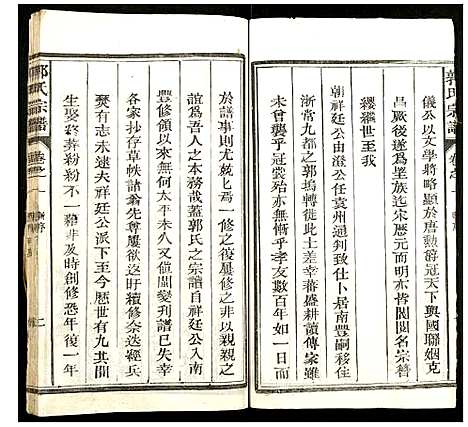 郭氏宗譜 卷之一
儀公以文學將略顯於唐勲爵冠天下與國聯姻克
昌厥後遂爲望族迄宋歷元而明亦皆閥閱名宗簪
纓繼世至我
朝祥廷公由澄公任袁州通判致仕卜居南豐嗣移住
浙常九都之郭塢轉徙此土差幸蕃盛耕讀傳家雖
未曾襲乎冠裳殆亦無慚乎孝友數百年如一日而
於譜事則尤兢兢一修之後屢修之非以親親之
誼爲吾人之本務哉蓋郭氏之宗譜自祥廷公入南
豐修領以來無何太平未久又值閩變刋譜已失幸
各家抄存草帙諸翁先尊屢欲迄時續修奈迭輕兵
燹有志未逮夫祥廷公派下至今歷世有九其間
生娶終葬紛紛不一藉非及時創修恐年復一年
郭氏宗譜 卷之一 二